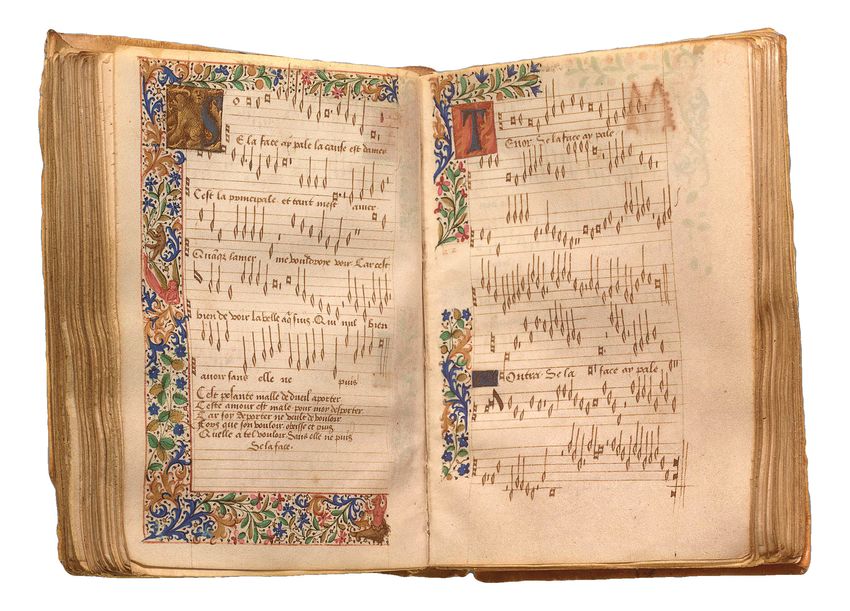 S
E la face ay pale la cause est damer
Cest la principale et tant mest amer
Quaqr lamer me vouldroye voir Car cest
bien de voir la belle a q̄ suis Qui nul bien
avoir sans elle ne puis
Cest pesante malle de dueil aporter
Ceste amour est male pour moy deporter
Car soy deporter ne veult de vouloir
Fors que son vouloir obeisse et puis
Quelle a tel vouloir Sans elle ne puis
Se la face.
T
Enor. Se la face ay pale
Ontra. Se la face ay pale